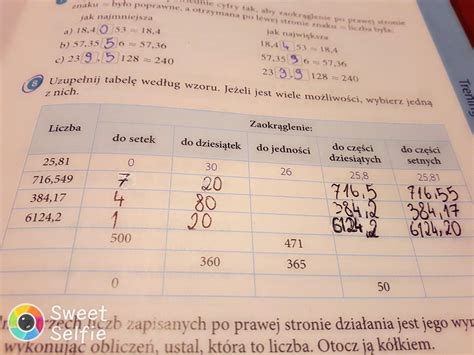 znaku ≈ było poprawne, a otrzymana po lewej stronie znaku ≈ liczba była:
jak najmniejsza
jak największa
a) 18,4 0 53 ≈ 18,4
18,4 4 53 ≈ 18,4
b) 57,35 5 6 ≈ 57,36
57,35 9 6 ≈ 57,36
c) 23 9 , 5 128 ≈ 240
23 9 , 9 128 ≈ 240
Trening
8 Uzupełnij tabelę według wzoru. Jeżeli jest wiele możliwości, wybierz jedną
z nich.
Liczba Zaokrąglenie:
do setek do dziesiątek do jedności do części dziesiątych do części setnych
25,81 0 30 26 25,8 25,81
716,549 7 20 716,5 716,55
384,17 4 80 384,2 384,17
6124,2 1 20 6124,2 6124,20
500 471
360 365
0 50
Sweet
Selfie
liczb zapisanych po prawej stronie działania jest jego
wykonując obliczeń, ustal, która to liczba. Otocz ją kółkiem.